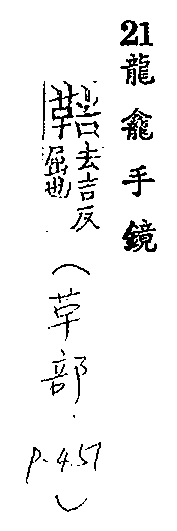 21 龍龕手鏡
鞊 去吉反
屈也
(草部.
p.451)